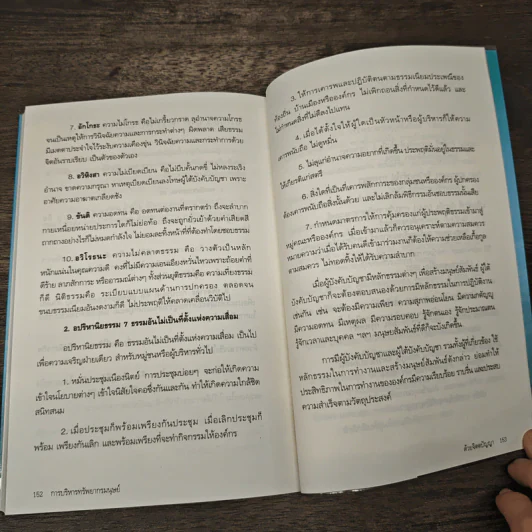 7. อักโกธะ ความไม่โกรธ คือไม่เกรี้ยวกราด ลุอำนาจความโกรธ
จนเป็นเหตุให้การวินิจฉัยความและการกระทำต่างๆ ผิดพลาด เสียธรรม
มีเมตตาประจำใจไว้ระงับความเคืองขุ่น วินิจฉัยความและกระทำการด้วย
จิตอันราบเรียบ เป็นตัวของตัวเอง
8. อวิหิงสา ความไม่เบียดเบียน คือไม่บีบคั้นกดขี่ ไม่หลงระเริง
อำนาจ ขาดความกรุณา หาเหตุเบียดเบียนลงโทษผู้ใต้บังคับบัญชา เพราะ
อาศัยความอาฆาตเกลียดชัง
9. ขันติ ความอดทน คือ อดทนต่องานที่ตรากตรำ ถึงจะลำบาก
กายเหนื่อยหน่ายประการใดก็ไม่ย่อท้อ ถึงจะถูกยั่วเย้าด้วยคำเสียดสี
ถากถางอย่างไรก็ไม่หมดกำลังใจ ไม่ยอมละทิ้งหน้าที่ที่ต้องทำโดยชอบธรรม
10. อวิโรธนะ ความไม่คลาดธรรม คือ วางตัวเป็นหลัก
หนักแน่นในคุณความดี คงที่ไม่มีความเอนเอียงหวั่นไหวเพราะถ้อยคำที่
ดีร้าย ลาภสักการะ หรืออารมณ์ต่างๆ ทั้งส่วนยุติธรรมคือ ความเที่ยงธรรม
ก็ดี นิติธรรมคือ ระเบียบแบบแผนด้านการปกครอง ตลอดจน
ขนบธรรมเนียมอันงดงามก็ดี ไม่ประพฤติให้คลาดเคลื่อนวิบัติไป
2. อปริหานิยธรรม 7 ธรรมอันไม่เป็นที่ตั้งแห่งความเสื่อม
อปริหานิยธรรม คือ ธรรมอันไม่เป็นที่ตั้งแห่งความเสื่อม เป็นไป
เพื่อความเจริญฝ่ายเดียว สำหรับหมู่ชนหรือผู้บริหารทั่วไป
1. หมั่นประชุมเนืองนิตย์ การประชุมบ่อยๆ จะก่อให้เกิดความ
เข้าใจนโยบายต่างๆ เข้าใจนิสัยใจคอซึ่งกันและกัน ทำให้เกิดความใกล้ชิด
สนิทสนม
2. เมื่อประชุมก็พร้อมเพรียงกันประชุม เมื่อเลิกประชุมก็
พร้อม เพรียงกันเลิก และพร้อมเพรียงที่จะทำกิจกรรมให้องค์กร
152 การบริหารทรัพยากรมนุษย์
3. ให้การเคารพและปฏิบัติตนตามธรรมเนียมประเพณีของ
ท้องถิ่น บ้านเมืองหรือองค์กร ไม่เพิกถอนสิ่งที่กำหนดไว้ดีแล้ว และ
ไม่กำหนดสิ่งที่ไม่ดีลงไปแทน
4. เมื่อได้ตั้งใจให้ผู้ใดเป็นหัวหน้าหรือผู้บริหารก็ให้ความ
เคารพนับถือ ไม่ดูหมิ่น
5. ไม่ลุแก่อำนาจความอยากที่เกิดขึ้น ประพฤติมั่นอยู่ในธรรมและ
ให้เกียรติแก่สตรี
6. สิ่งใดที่เป็นที่เคารพสักการะของกลุ่มชนหรือองค์กร ผู้ปกครอง
ต้องเคารพนับถือสิ่งนั้นด้วย และไม่เลิกล้มพิธีกรรมอันชอบธรรมนั้นเสีย
7. กำหนดมาตรการให้การคุ้มครองแก่ผู้ประพฤติธรรมเข้ามาอยู่
หมู่คณะหรือองค์กร เมื่อเข้ามาแล้วก็ควรอนุเคราะห์ตามความสมควร
หมายความว่าเมื่อได้รับคนดีเข้ามาร่วมงานก็ต้องให้ความช่วยเหลือเกื้อกูล
ตามสมควร ไม่ทอดทิ้งให้ได้รับความลำบาก
เมื่อผู้บังคับบัญชามีหลักธรรมต่างๆ เพื่อสร้างมนุษย์สัมพันธ์ ผู้ใต้
บังคับบัญชาก็จะต้องตอบสนองด้วยการมีหลักธรรมในการปฏิบัติงาน
เช่นกัน เช่น จะต้องมีความเพียร ความสุภาพอ่อนโยน มีความกตัญญู
มีความอดทน มีเหตุผล มีความรอบคอบ รู้จักตนเอง รู้จักประมาณตน
รู้จักเวลาและบุคคล ฯลฯ มนุษยสัมพันธ์ที่ดีก็จะบังเกิดขึ้น
การมีผู้บังคับบัญชาและผู้ใต้บังคับบัญชา รวมทั้งผู้ที่เกี่ยวข้อง ใช้
หลักธรรมในการทำงานและสร้างมนุษย์สัมพันธ์ดังกล่าว ย่อมทำให้
ประสิทธิภาพในการทำงานขององค์กรมีความเรียบร้อย ราบรื่น และประสบ
ความสำเร็จตามวัตถุประสงค์
ด้วยจิตตปัญญา 153